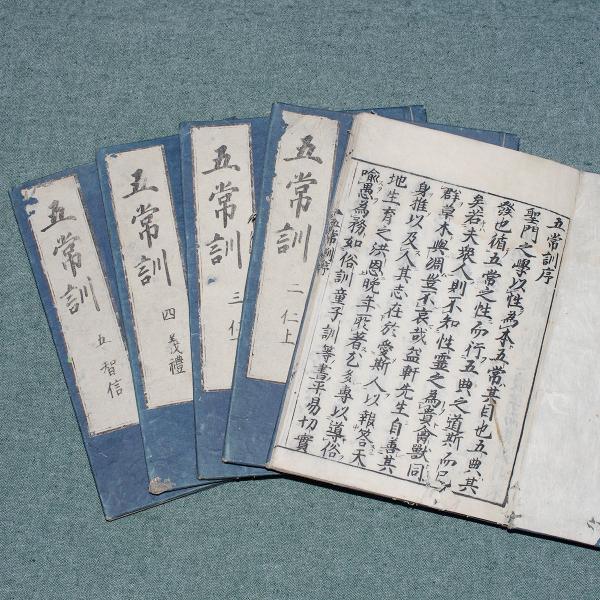 五常訓序
聖門之學以性為本五常其目也五典其
發也循五常之性而行五典之道斯而已
矣若夫衆人則不知性霊之為貴禽獸同
群草木與凋豈不哀哉益軒先生自善其
身推以及人其志在於愛斯人以報答天
地生育之洪恩晩年所著尤多專以導俗
喩愚為務如俗訓童子訓等書平易切實
五常訓序
五常訓
二 仁上
五常訓
三 仁
五常訓
四 義禮
五常訓
五 智信